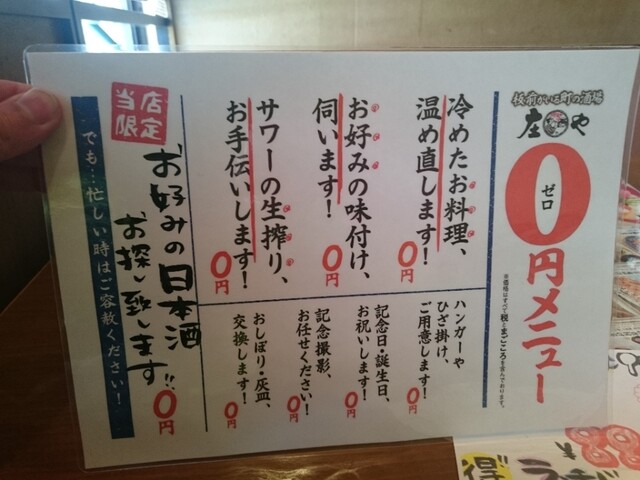 板前がいる町の酒場
庄や
0円メニュー
ゼロ
※価格はすべて税とまごころを含んでおります。
冷めたお料理、
温め直します!
0円
お好みの味付け、
伺います!
0円
サワーの生搾り、
お手伝いします!
0円
ハンガーや
ひざ掛け、
ご用意します!
0円
記念日・誕生日、
お祝いします!
0円
記念撮影、
お任せください!
0円
おしぼり・灰皿、
交換します!
0円
当店
限定
お好みの日本酒
お探し致します!!
0円
でも…忙しい時はご容赦ください!
得